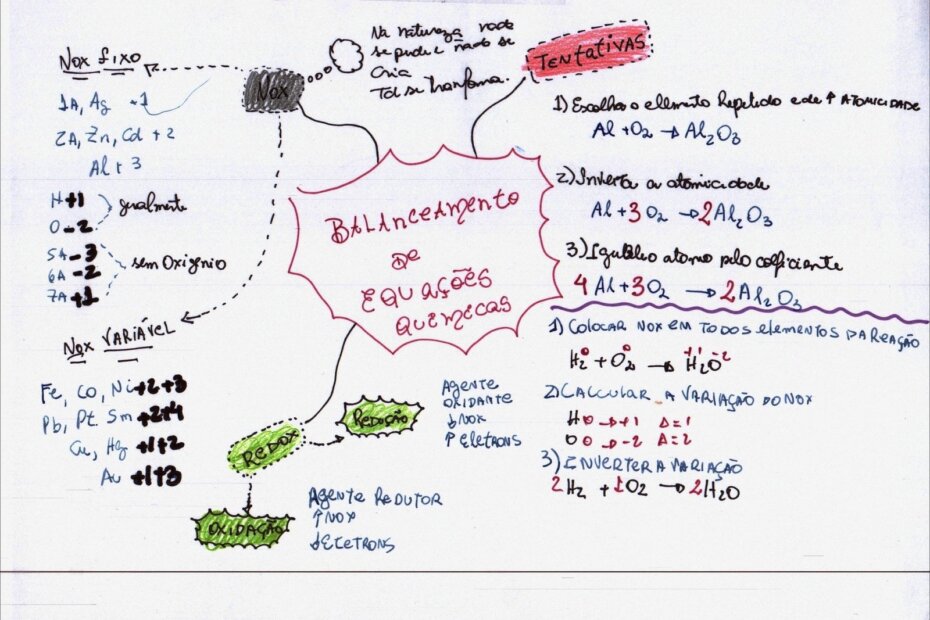 Nox fixo
1A, Ag +1
2A, Zn, Cd +2
Al +3
H +1
O -2
geralmente
5A -3
6A -2
7A -1
sem Oxigênio
Nox VARIÁVEL
Fe, Co, Ni +2 +3
Pb, Pt. Sm +2 +4
Cu, Hg +1 +2
Au +1 +3
NOX
Na natureza nada
se perde e nada se
cria
Td se transforma.
TENTATIVAS
1) Escolha o elemento Repetido e de ↑ ATOMICIDADE
Al + O2 → Al2O3
2) Inverta a atomicidade
Al + 3O2 → 2Al2O3
3) Iguale o atomo pelo coeficiente
4Al + 3O2 → 2Al2O3
BALANCEAMENTO
DE
EQUAÇÕES
QUÍMICAS
REDOX
REDUÇÃO
AGENTE
OXIDANTE
↓NOX
↑ELETRONS
OXIDAÇÃO
AGENTE REDUTOR
↑NOX
↓ELETRONS
1) COLOCAR NOX EM TODOS elementos DA REAÇÃO
H2⁰ + O2⁰ → H2⁺¹O⁻²
2) CALCULAR A VARIAÇÃO DO NOX
H 0 → +1 Δ=1
O 0 → -2 Δ=2
3) INVERTER A VARIAÇÃO
2H2 + 1O2 → 2H2O